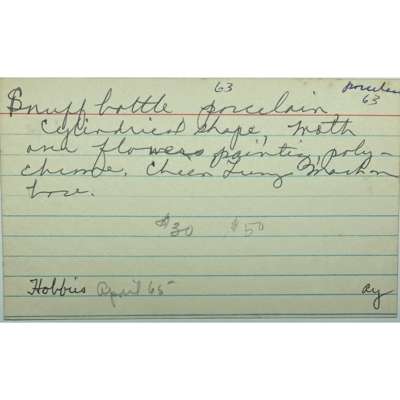 63 porcelain
63
Snuff bottle porcelain
cylindrical shape, moth
and flowers painting, poly-
chrome. Chien Lung Mark on
base.
$30 $50
Hobbies April 65 ay